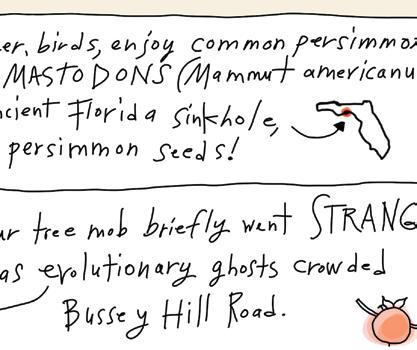 er, birds, enjoy common persimmo
MASTODONS (Mammut americanu
cient Florida sinkhole,
persimmon seeds!
ur tree mob briefly went STRANG
as evolutionary ghosts crowded
Bussey Hill Road.